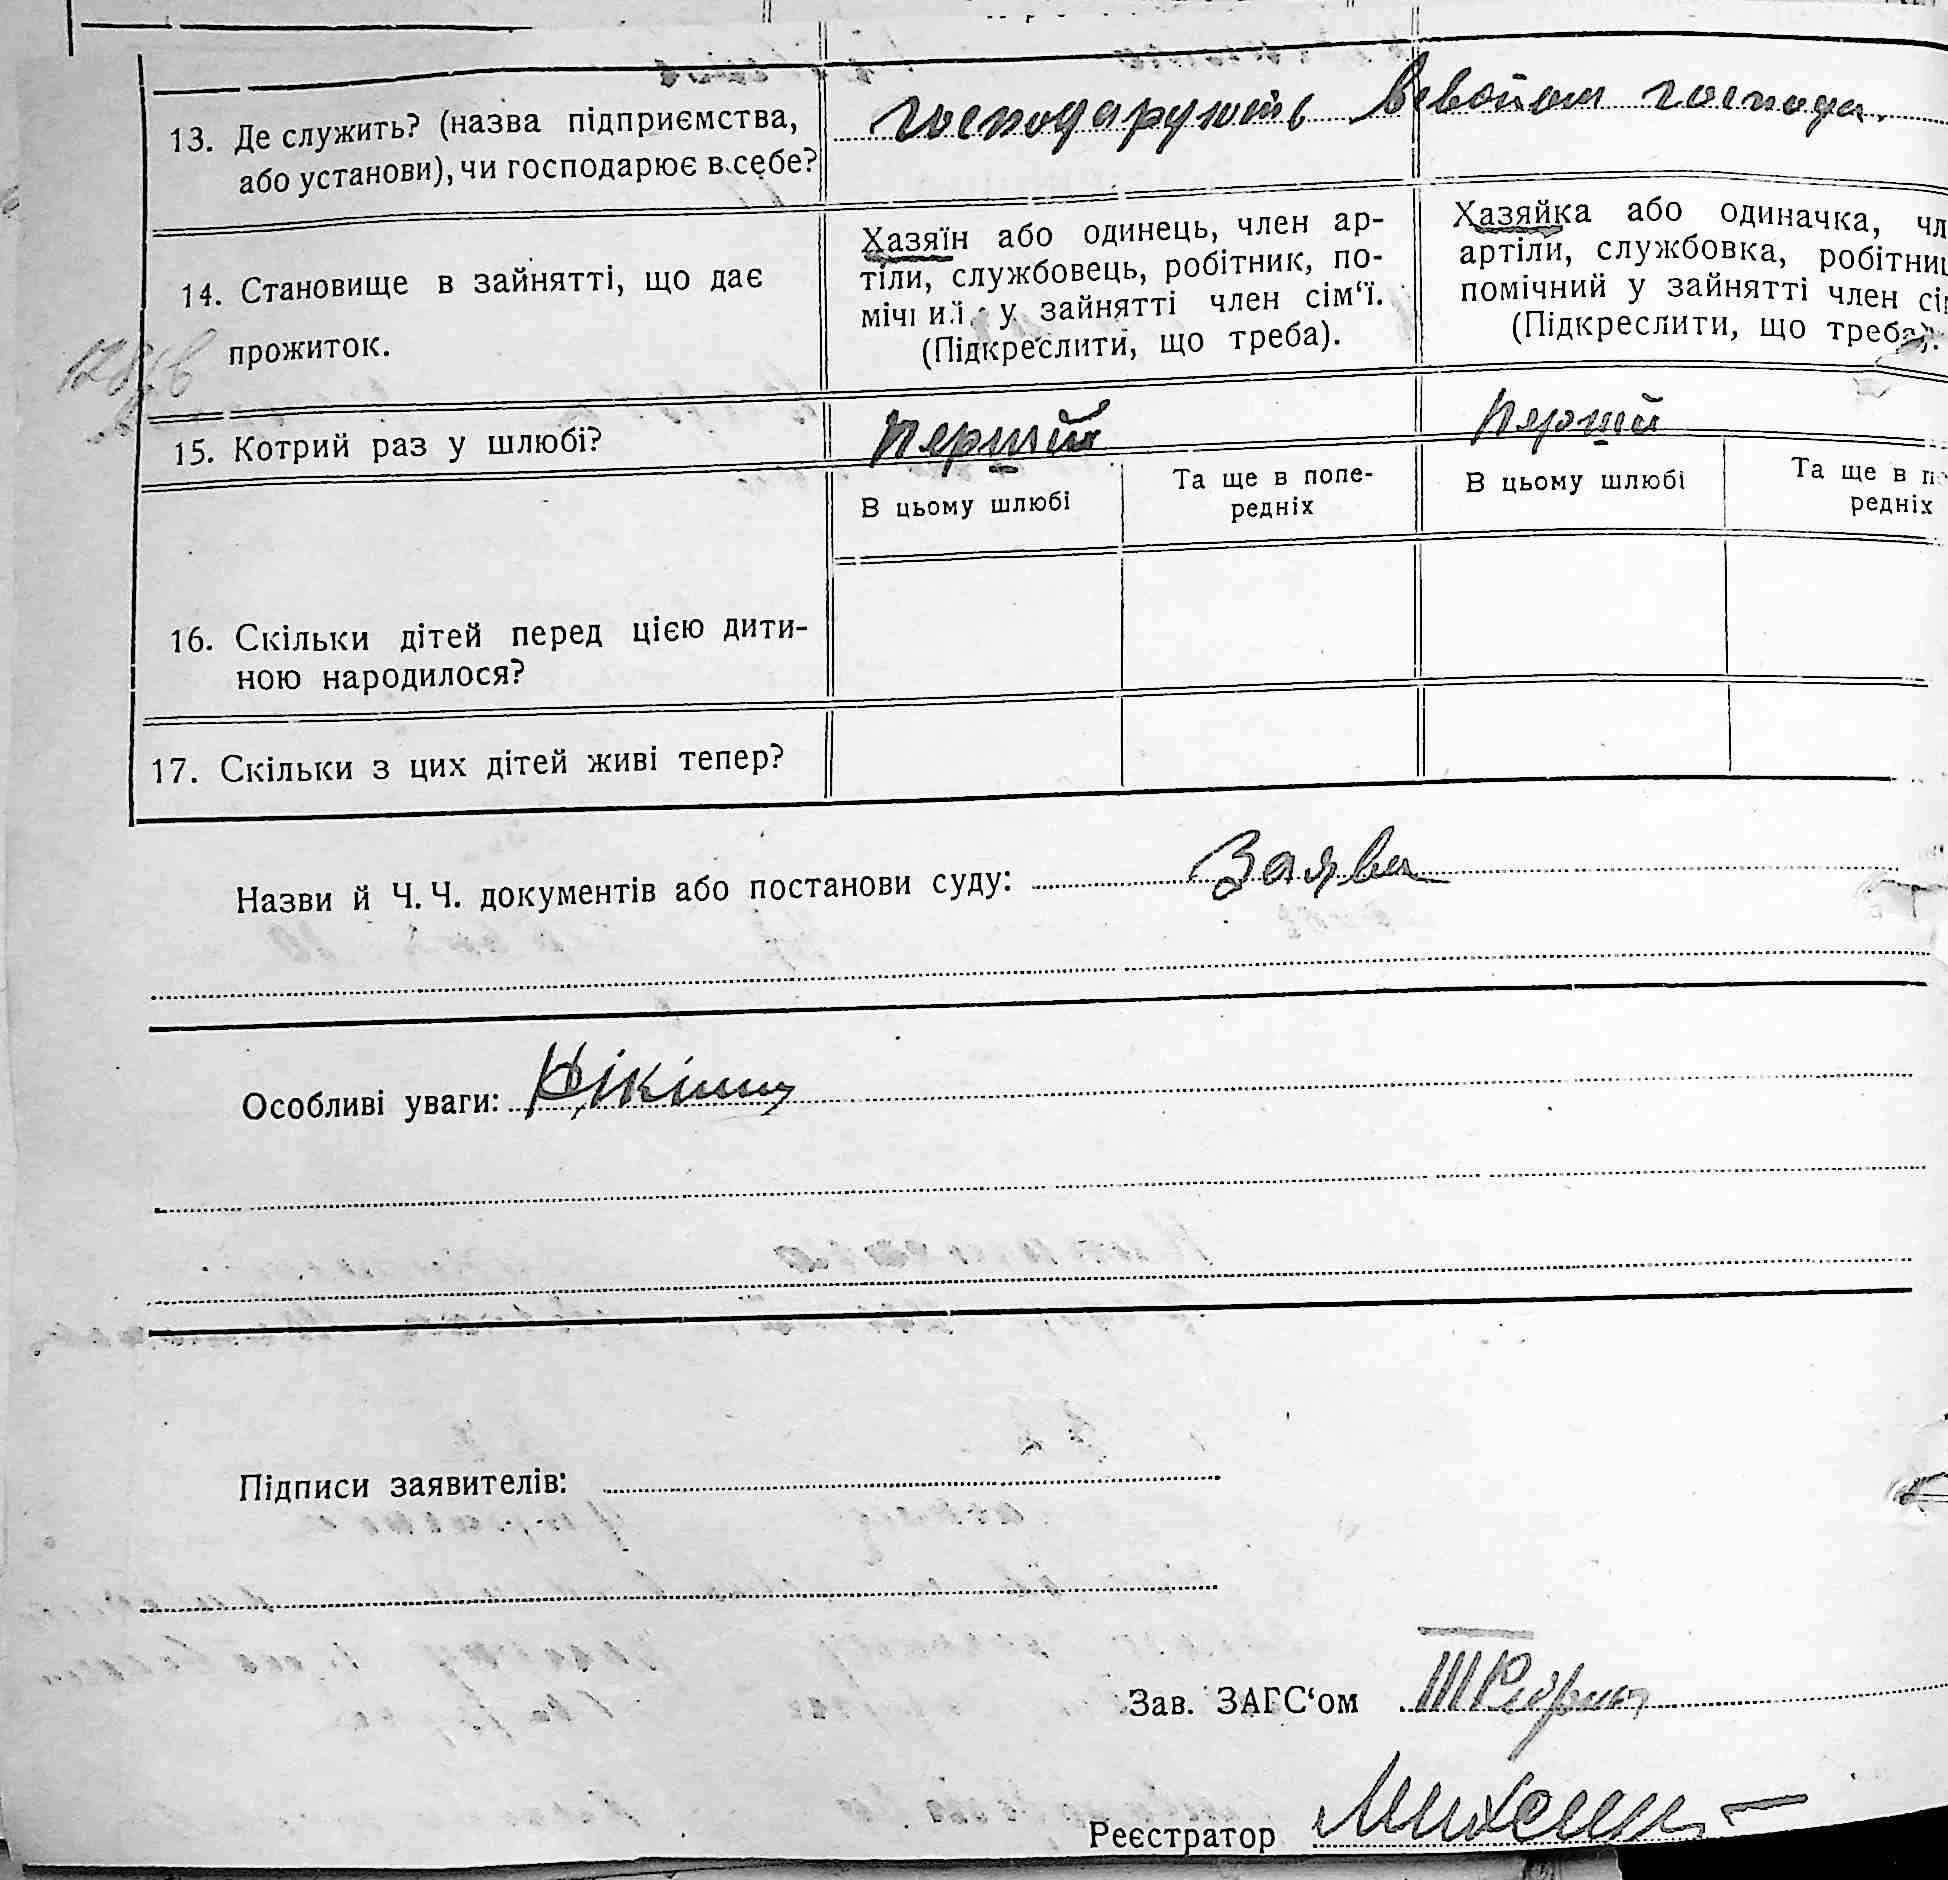 13. Де служить? (назва підприємства,
або установи), чи господарює в себе?
господарують в свойом господа.
14. Становище в зайнятті, що дає
прожиток.
Хазяїн або одинець, член ар-
тіли, службовець, робітник, по-
мічний у зайнятті член сім‘ї.
(Підкреслити, що треба).
Хазяйка або одиначка, чл
артіли, службовка, робітниц
помічний у зайнятті член сі
(Підкреслити, що треба).
15. Котрий раз у шлюбі?
перший
перший
В цьому шлюбі
Та ще в попе-
редніх
В цьому шлюбі
Та ще в п
редніх
16. Скільки дітей перед цією дити-
ною народилося?
17. Скільки з цих дітей живі тепер?
Назви й Ч. Ч. документів або постанови суду: Заява
Особливі уваги:
Підписи заявителів:
Зав. ЗАГС‘ом
Реєстратор